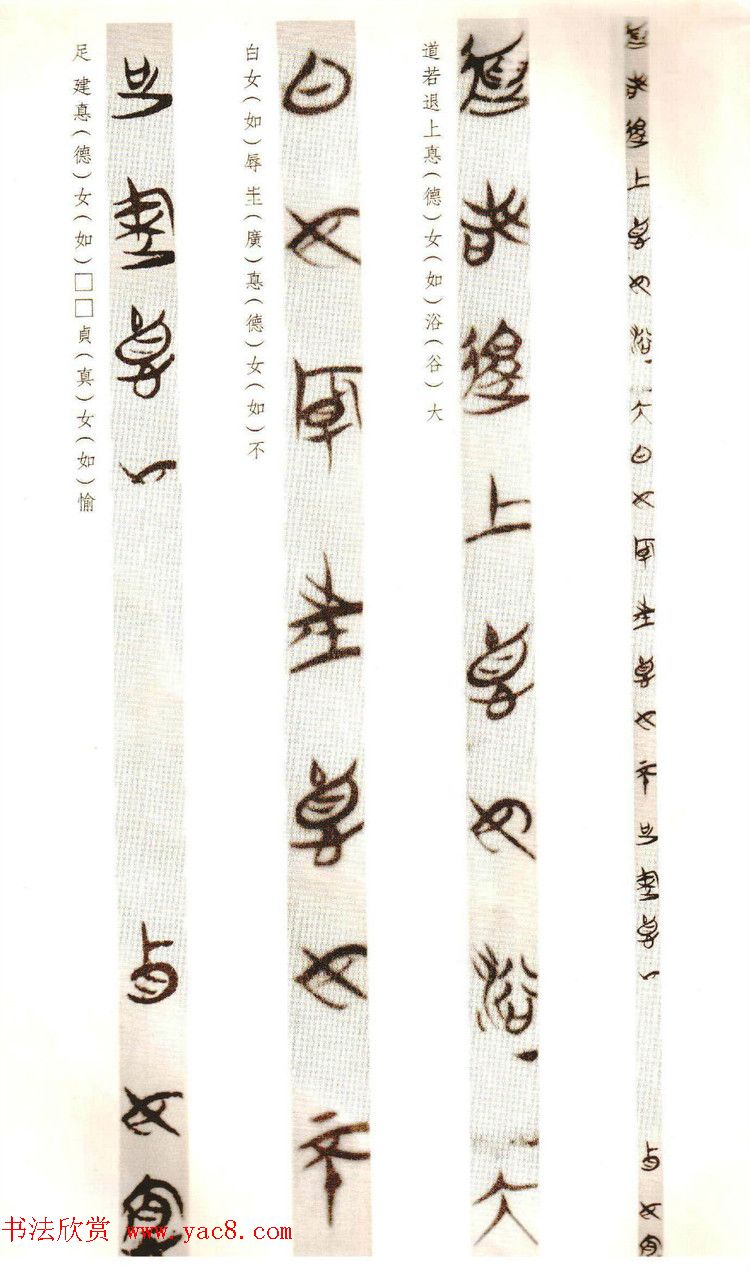 道若退上悳（德）女（如）浴（谷）大
白女（如）辱㞷（廣）悳（德）女（如）不
足建悳（德）女（如）□□貞（真）女（如）愉
书法欣赏 www.yac8.com